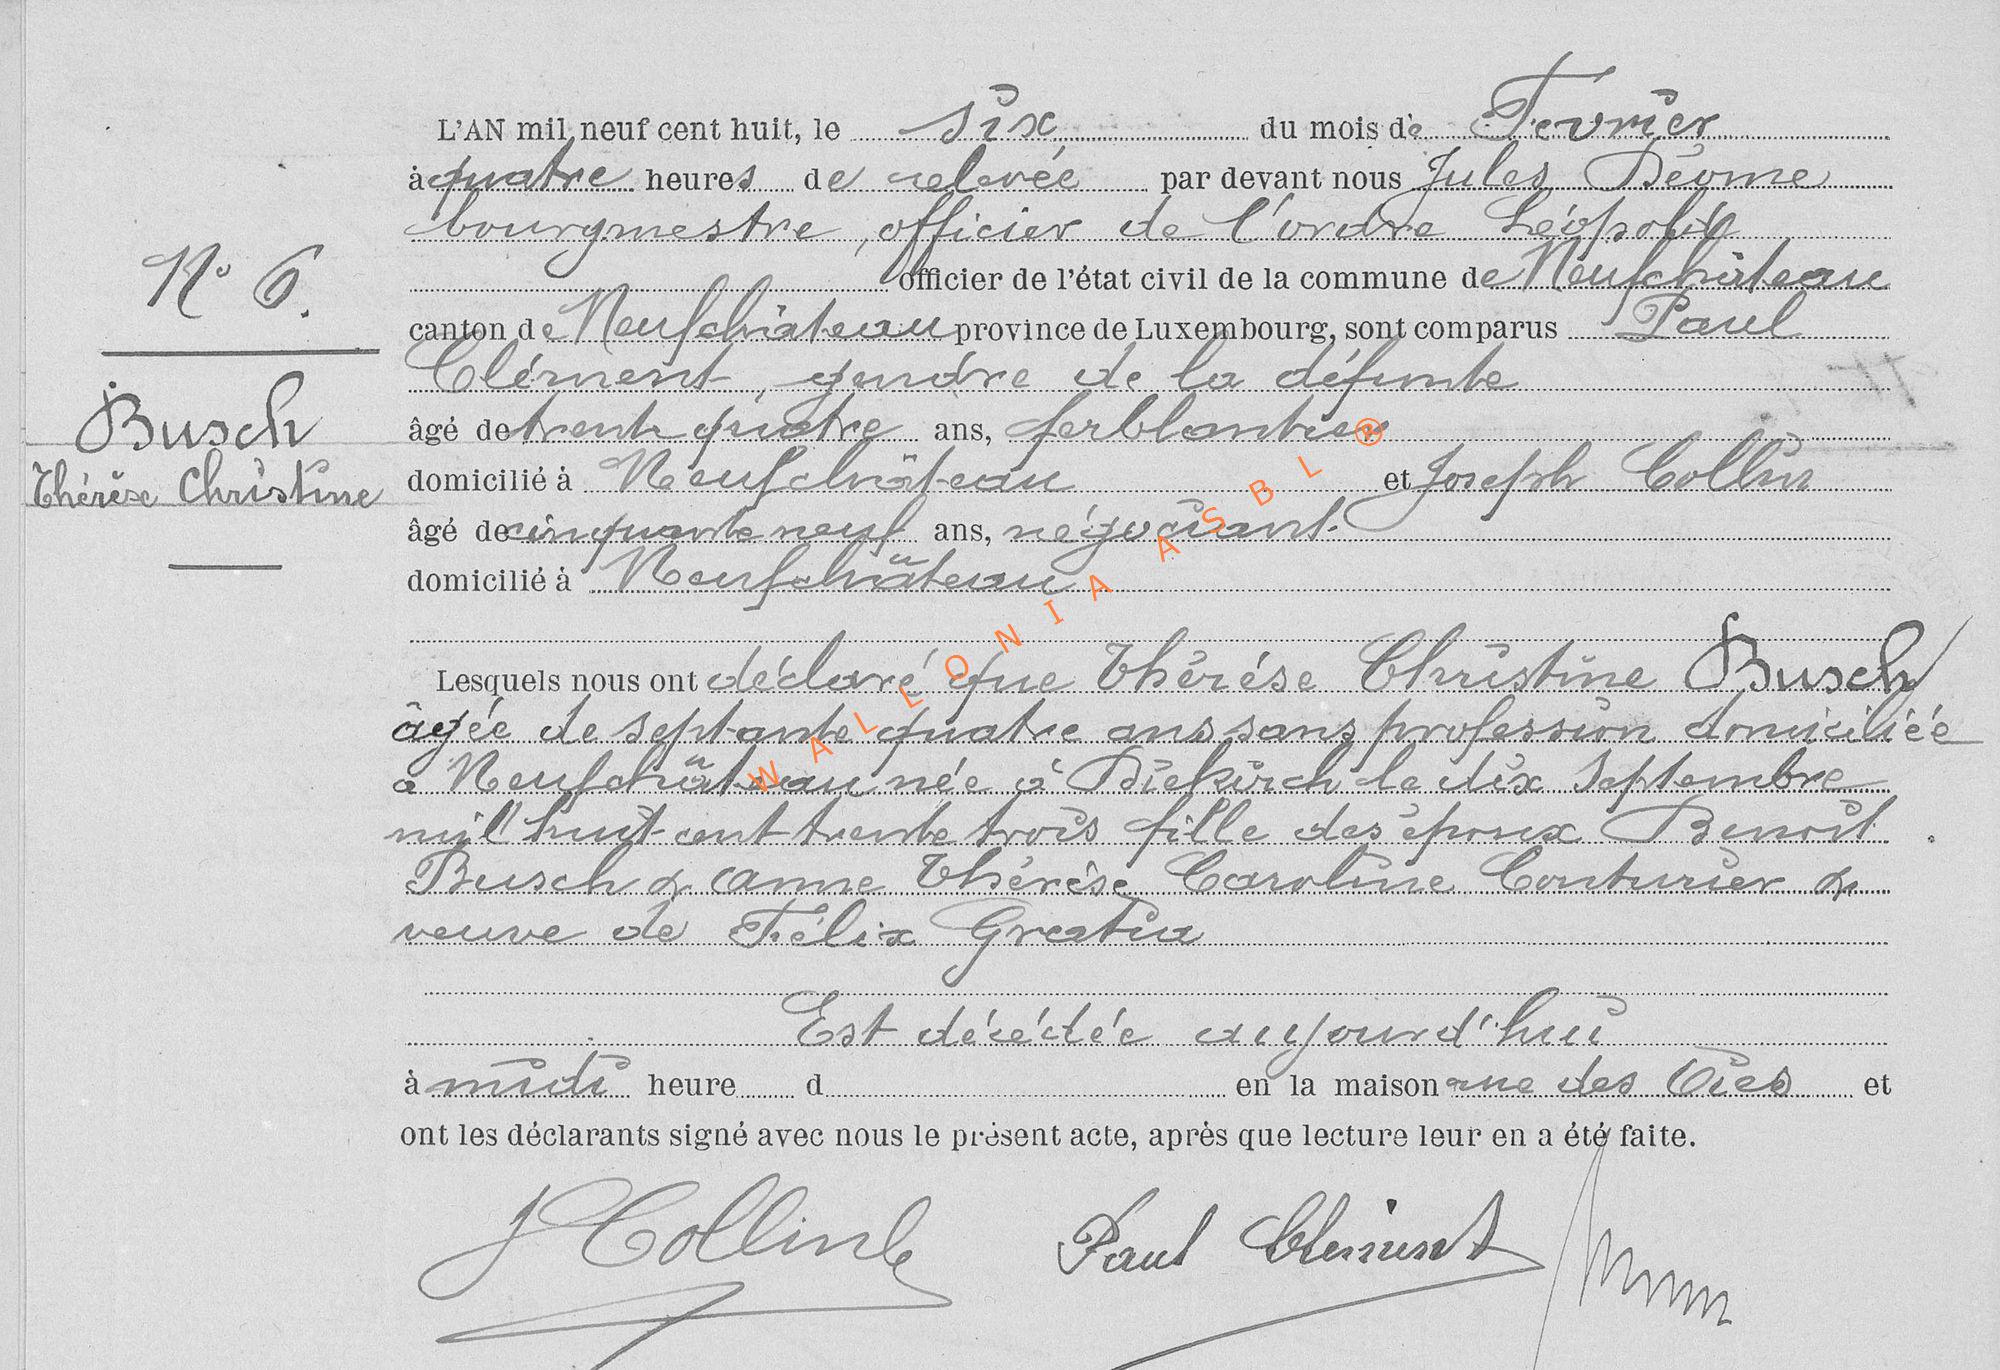 L'AN mil neuf cent huit, le six du mois de Fevrier
à quatre heures de relevée par devant nous Jules Déome
bourgmestre, officier de l'ordre Léopold
officier de l'état civil de la commune de Neufchâteau
canton de Neufchâteau province de Luxembourg, sont comparus Paul
Clément, gendre de la défunte
âgé de trente quatre ans, ferblantier
domicilié à Neufchâteau et Joseph Collin
âgé de cinquante neuf ans, négociant
domicilié à Neufchâteau
N° 6.
Busch
Thérèse Christine
Lesquels nous ont déclaré que Thérése Christine Busch
âgée de septante quatre ans sans profession domiciliée
a Neufchâteau née à Diekirch le dix Septembre
mil huit cent trente trois fille des époux Benoit
Busch & Anne Thérèse Caroline Couturier &
veuve de Félix Gratia
Est décédée aujourd'hui
à midi heure d en la maison rue des et
ont les déclarants signé avec nous le présent acte, après que lecture leur en a été faite.
J Collin
Paul Clément
WALLONIA ASBL ®